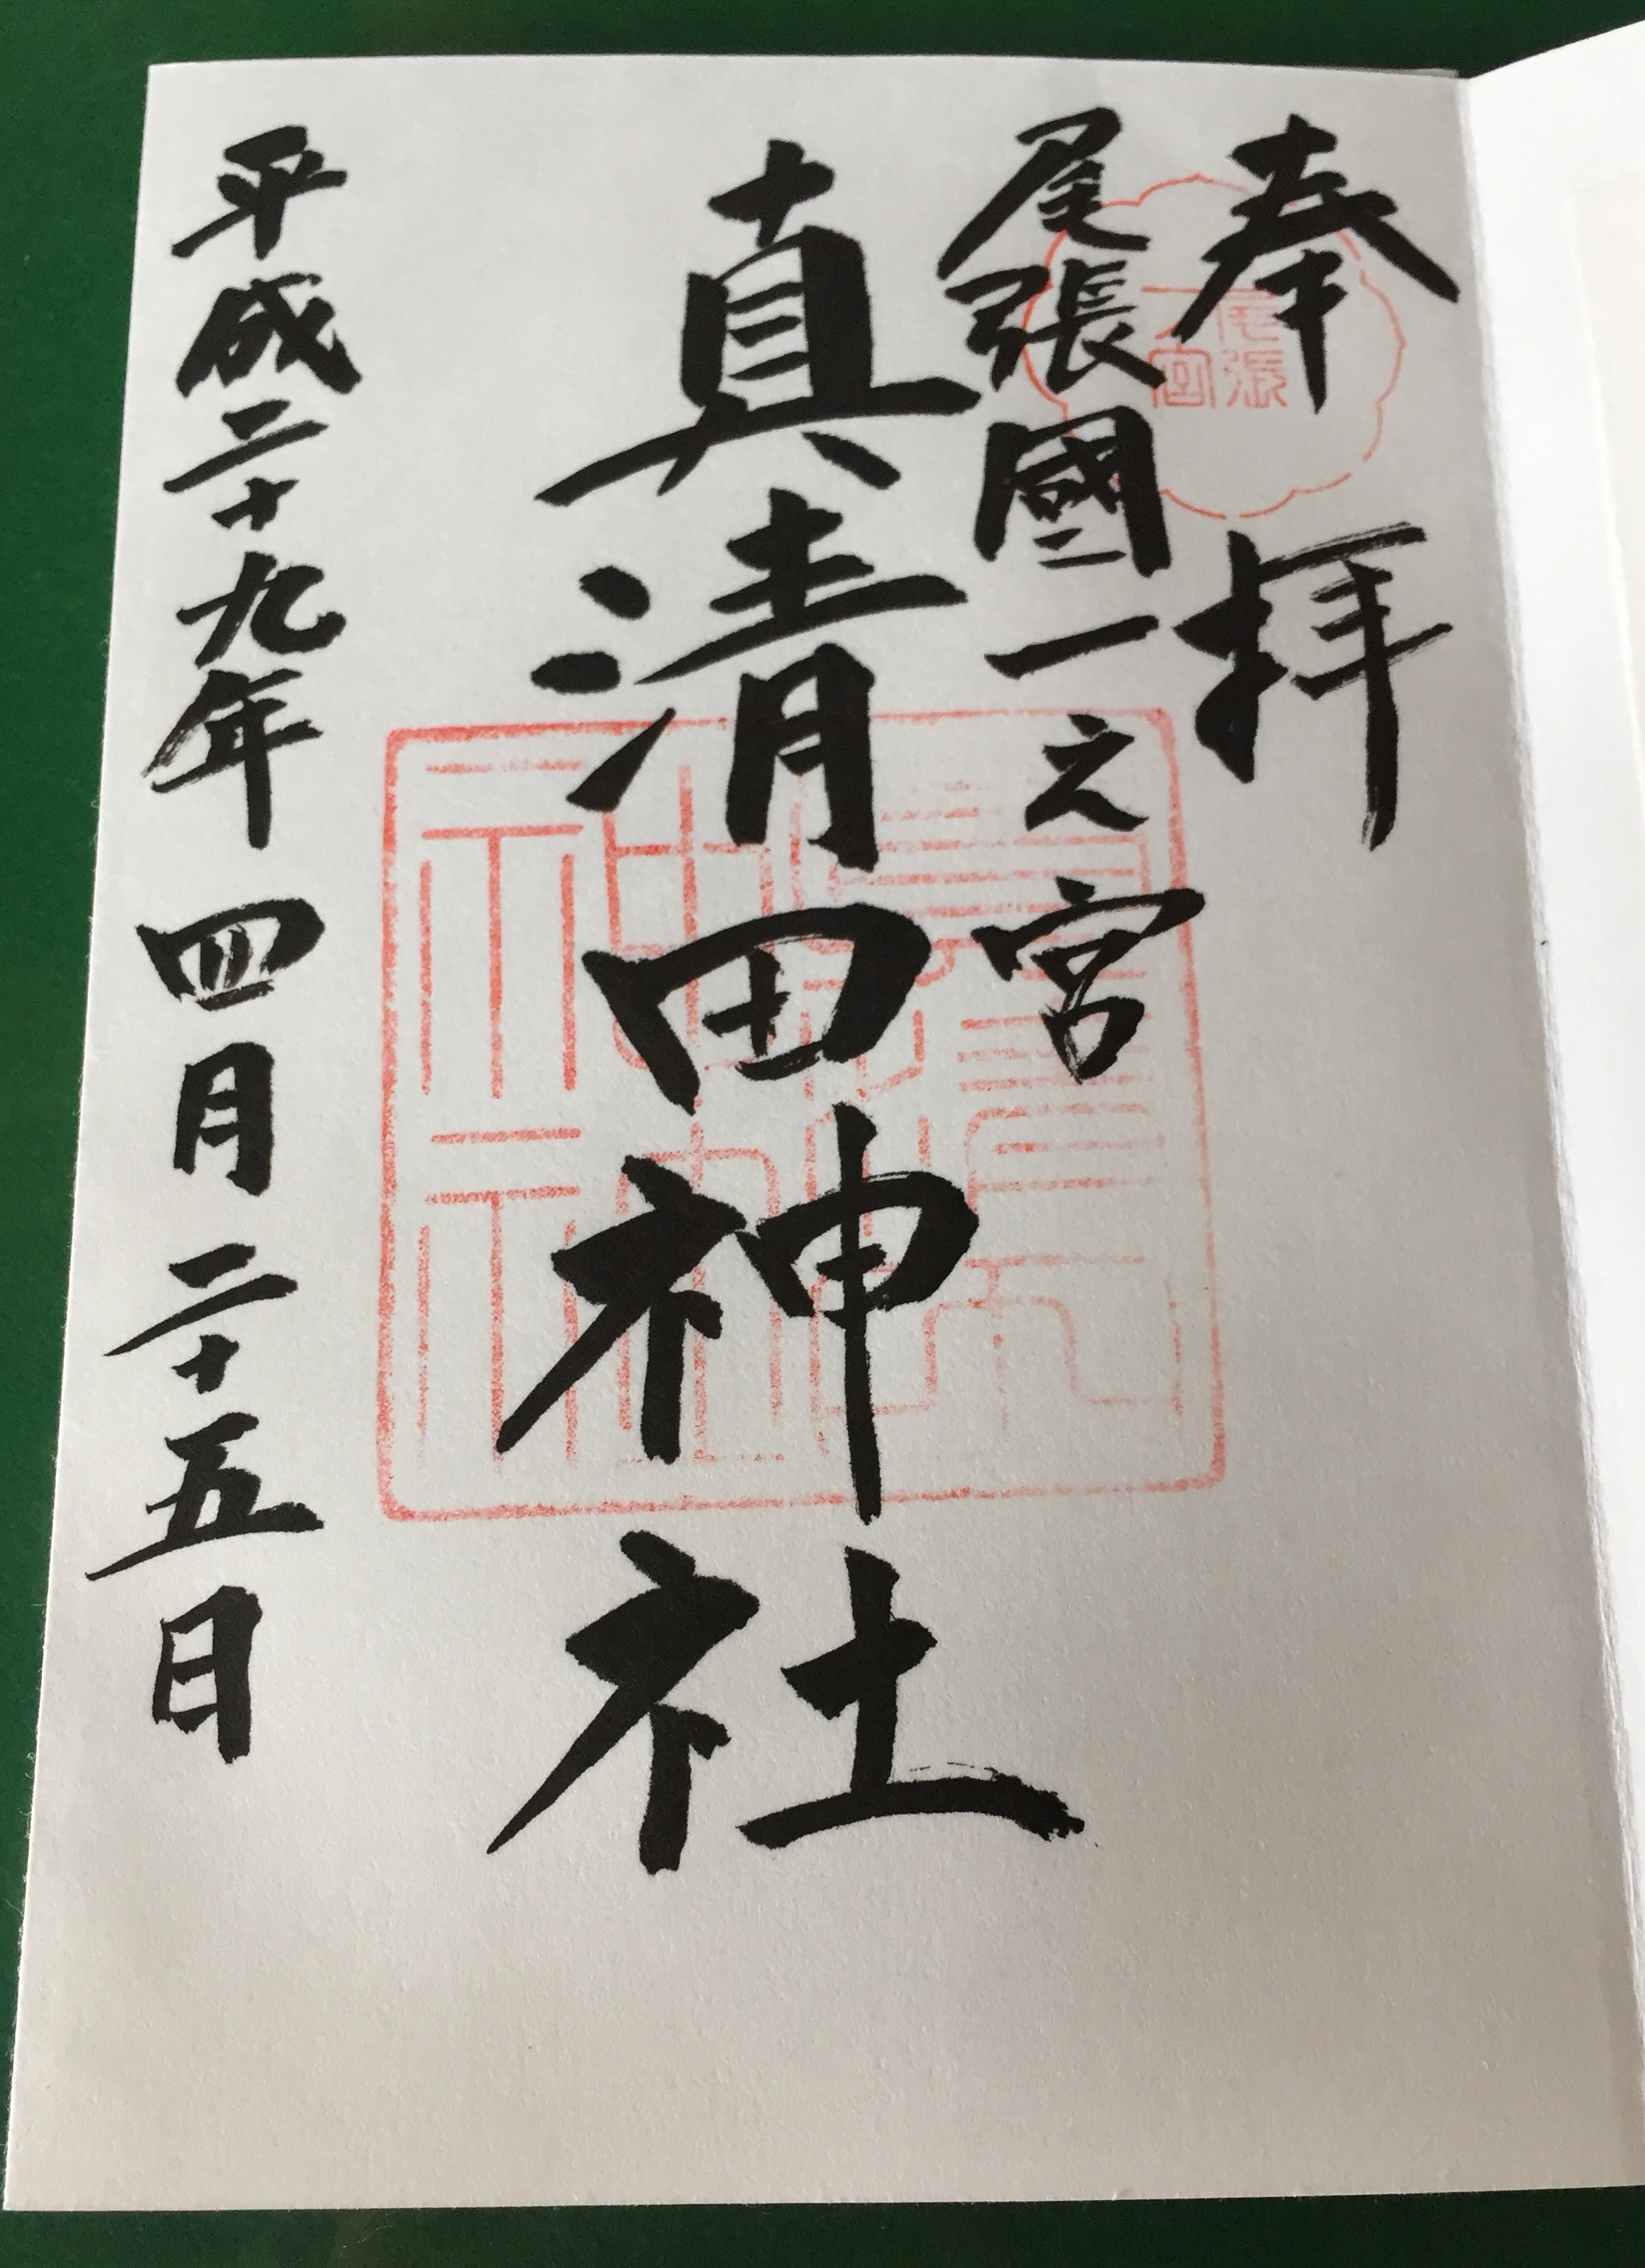 奉拝
尾張國一之宮
真清田神社
平成二十九年四月二十五日
尾張
一宮